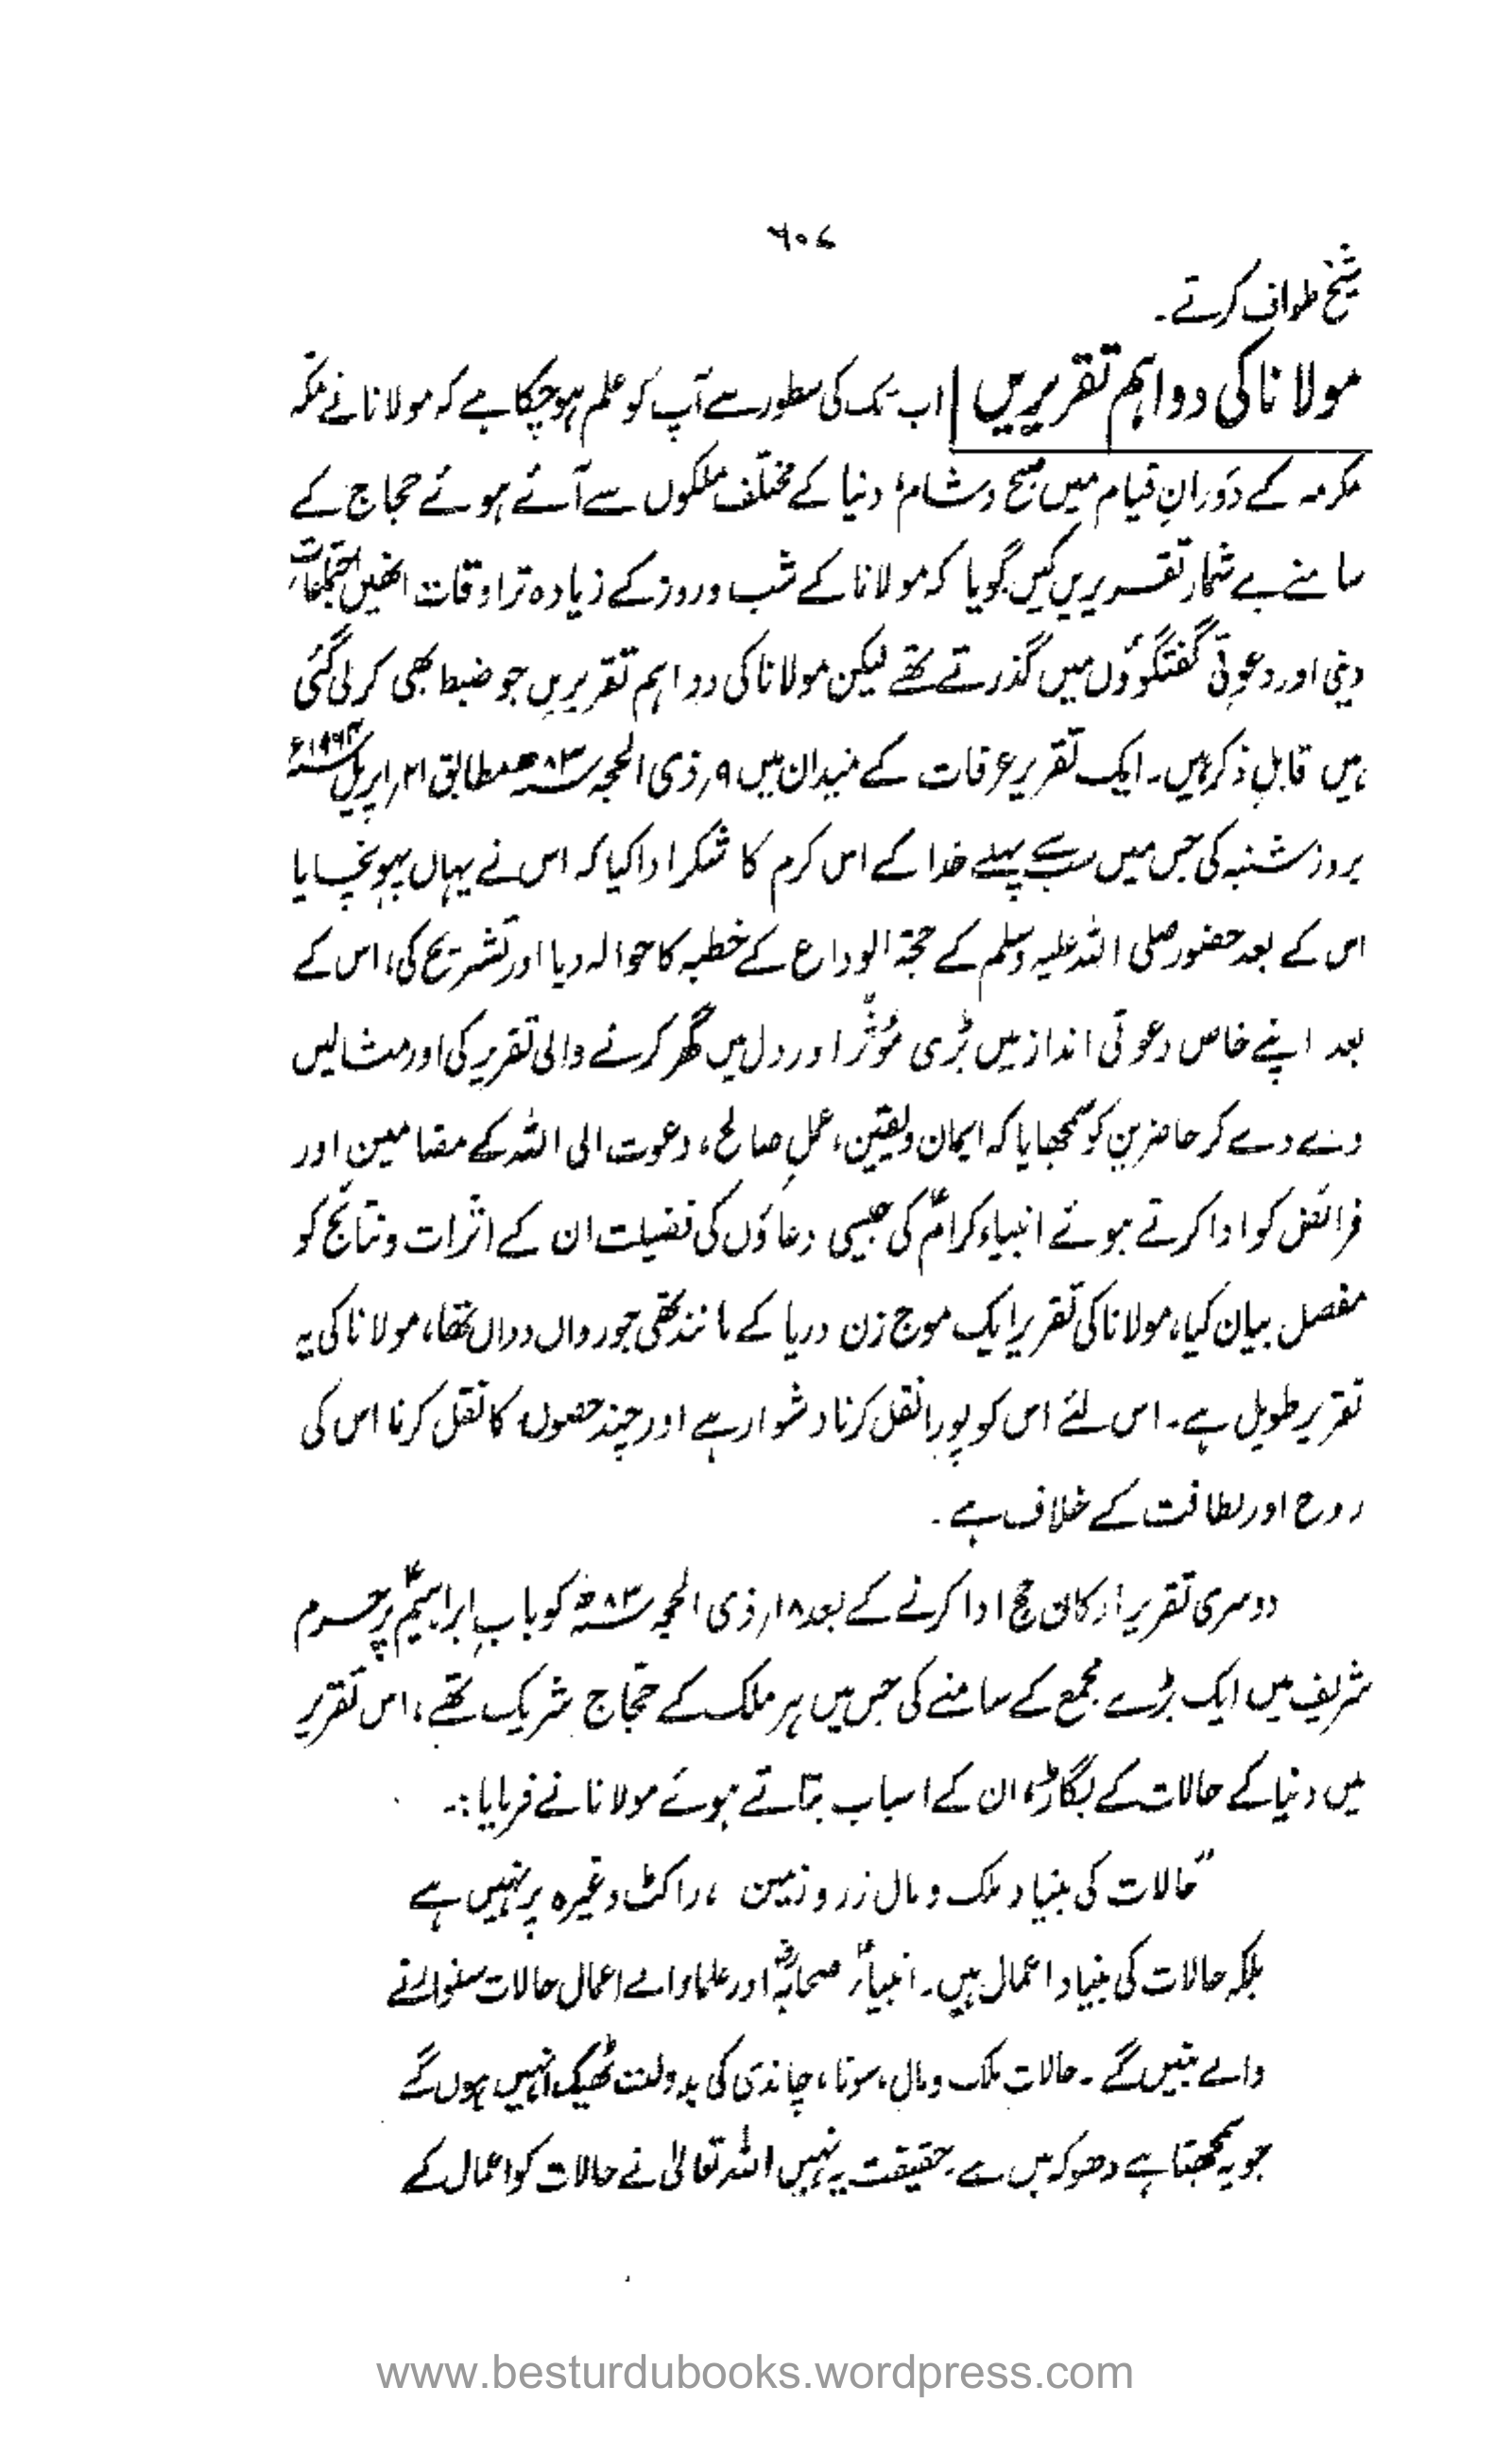 ۶۰۷
شیخ طواف کرتے۔
مولانا کی دو اہم تقریریں اب تک کی سطور سے آپ کو علم ہو چکا ہے کہ مولانا نے مکہ
مکرمہ کے دَورانِ قیام میں صبح و شام، دنیا کے مختلف ملکوں سے آئے ہوئے حجاج کے
سامنے بے شمار تقریریں کیں گویا کہ مولانا کے شب و روز کے زیادہ تر اوقات انھیں اجتماعات،
دینی اور دعوتی گفتگوؤں میں گذرتے تھے لیکن مولانا کی دو اہم تقریریں جو ضبط بھی کر لی گئی
ہیں قابلِ ذکر ہیں۔ ایک تقریر عرفات کے میدان میں ۹؍ ذی الحجہ ۸۳ھ مطابق ۲۱؍ اپریل ۱۹۶۴ء
بروز شنبہ کی جس میں سب سے پہلے خدا کے اس کرم کا شکر ادا کیا کہ اس نے یہاں پہونچایا
اس کے بعد حضور صلی اللہ علیہ وسلم کے حجۃ الوداع کے خطبہ کا حوالہ دیا اور تشریح کی، اس کے
بعد اپنے خاص دعوتی انداز میں بڑی مؤثر اور دل میں گھر کرنے والی تقریر کی اور مثالیں
دے دے کر حاضرین کو سمجھایا کہ ایمان و یقین، عملِ صالح، دعوت الی اللہ کے مضامین اور
فرائض کو ادا کرتے ہوئے انبیاء کرامؑ کی جیسی دعاؤں کی فضیلت ان کے اثرات و نتائج کو
مفصل بیان کیا، مولانا کی تقریر ایک موج زن دریا کے مانند تھی جو رواں دواں تھا، مولانا کی یہ
تقریر طویل ہے۔ اس لئے اس کو پورا نقل کرنا دشوار ہے اور چند حصوں کا نقل کرنا اس کی
روح اور لطافت کے خلاف ہے۔
دوسری تقریر ارکان حج ادا کرنے کے بعد ۱۸؍ ذی الحجہ ۸۳ھ کو بابِ ابراہیمؑ پر حرم
شریف میں ایک بڑے مجمع کے سامنے کی جس میں ہر ملک کے حجاج شریک تھے، اس تقریر
میں دنیا کے حالات کے بگاڑ، ان کے اسباب بتاتے ہوئے مولانا نے فرمایا:۔
"حالات کی بنیاد ملک و مال زر و زمین، راکٹ وغیرہ پر نہیں ہے
بلکہ حالات کی بنیاد اعمال ہیں۔ انبیاءؑ صحابہؓ اور علماء والے اعمال حالات سنوارنے
والے بنیں گے۔ حالات ملک و مال، سونا، چاندی کی بدولت ٹھیک نہیں ہوں گے
جو یہ سمجھتا ہے دھوکہ میں ہے۔ حقیقت یہ نہیں اللہ تعالیٰ نے حالات کو اعمال کے
www.besturdubooks.wordpress.com